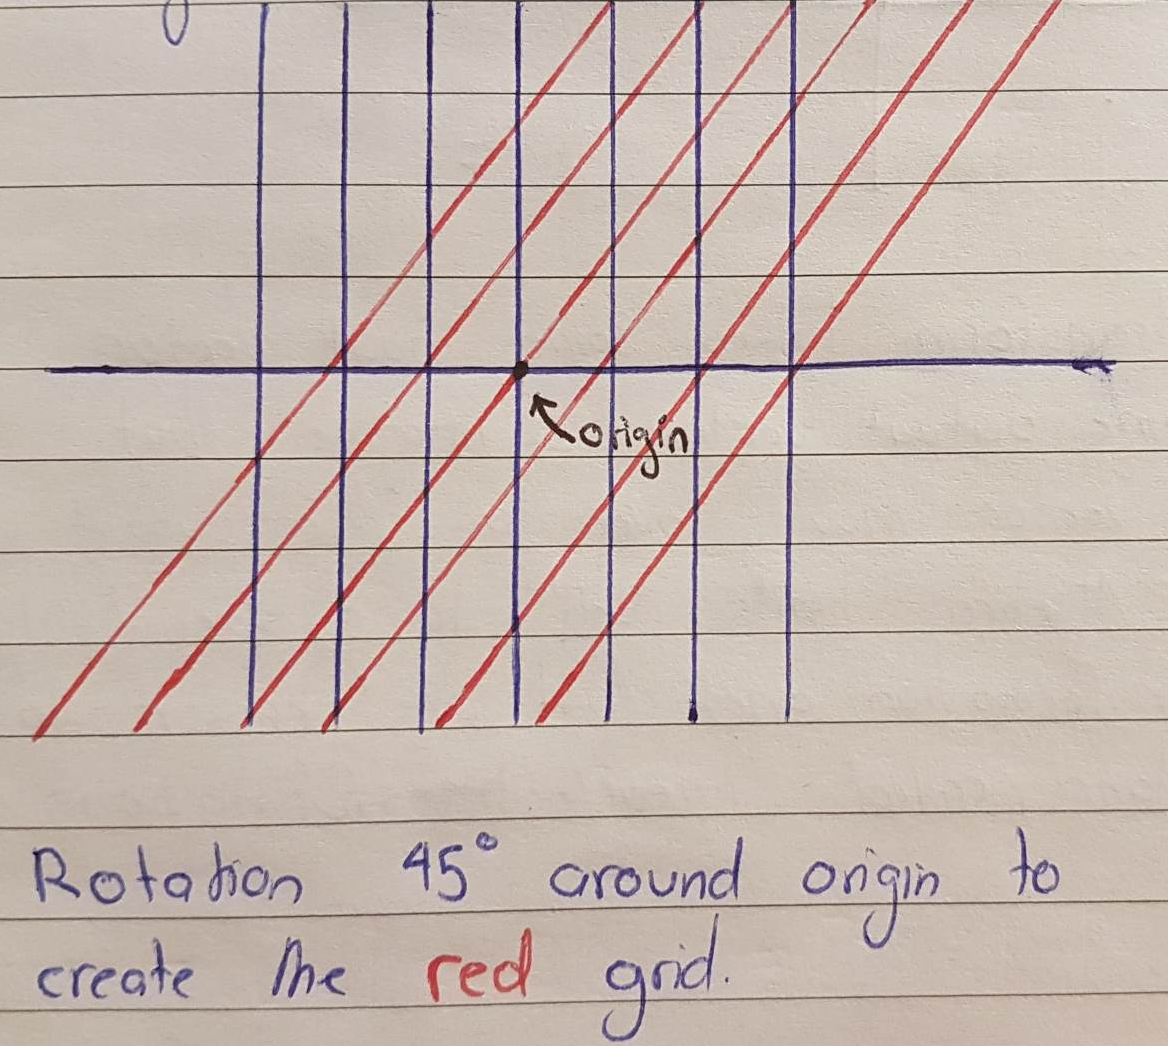 origin
Rotation 45° around origin to
create the red grid.